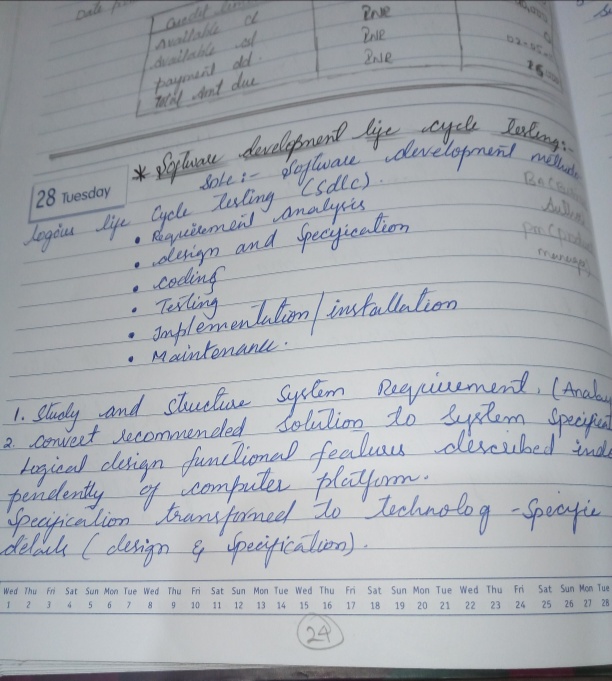 Date
Credit
Available cl PNR
Available PNR
payment dd. PNR
Total Amt due
* Software development life cycle Testing:-
28 Tuesday
Sdlc:- Software development
life Cycle Testing (Sdlc).
• Requirement Analysis
• design and Specification
• coding
• Testing
• Implementation/installation
• Maintenance.
1. Study and Structure System Requirement. (
2. convert recommended Solution to System
Logical design functional features described inde
pendently of computer platform.
Specification transformed to technolog - Specific
details (design & Specification).
Wed Thu Fri Sat Sun Mon Tue Wed Thu Fri Sat Sun Mon Tue Wed Thu Fri Sat Sun Mon Tue Wed Thu Fri Sat Sun Mon Tue
1 2 3 4 5 6 7 8 9 10 11 12 13 14 15 16 17 18 19 20 21 22 23 24 25 26 27 28
24